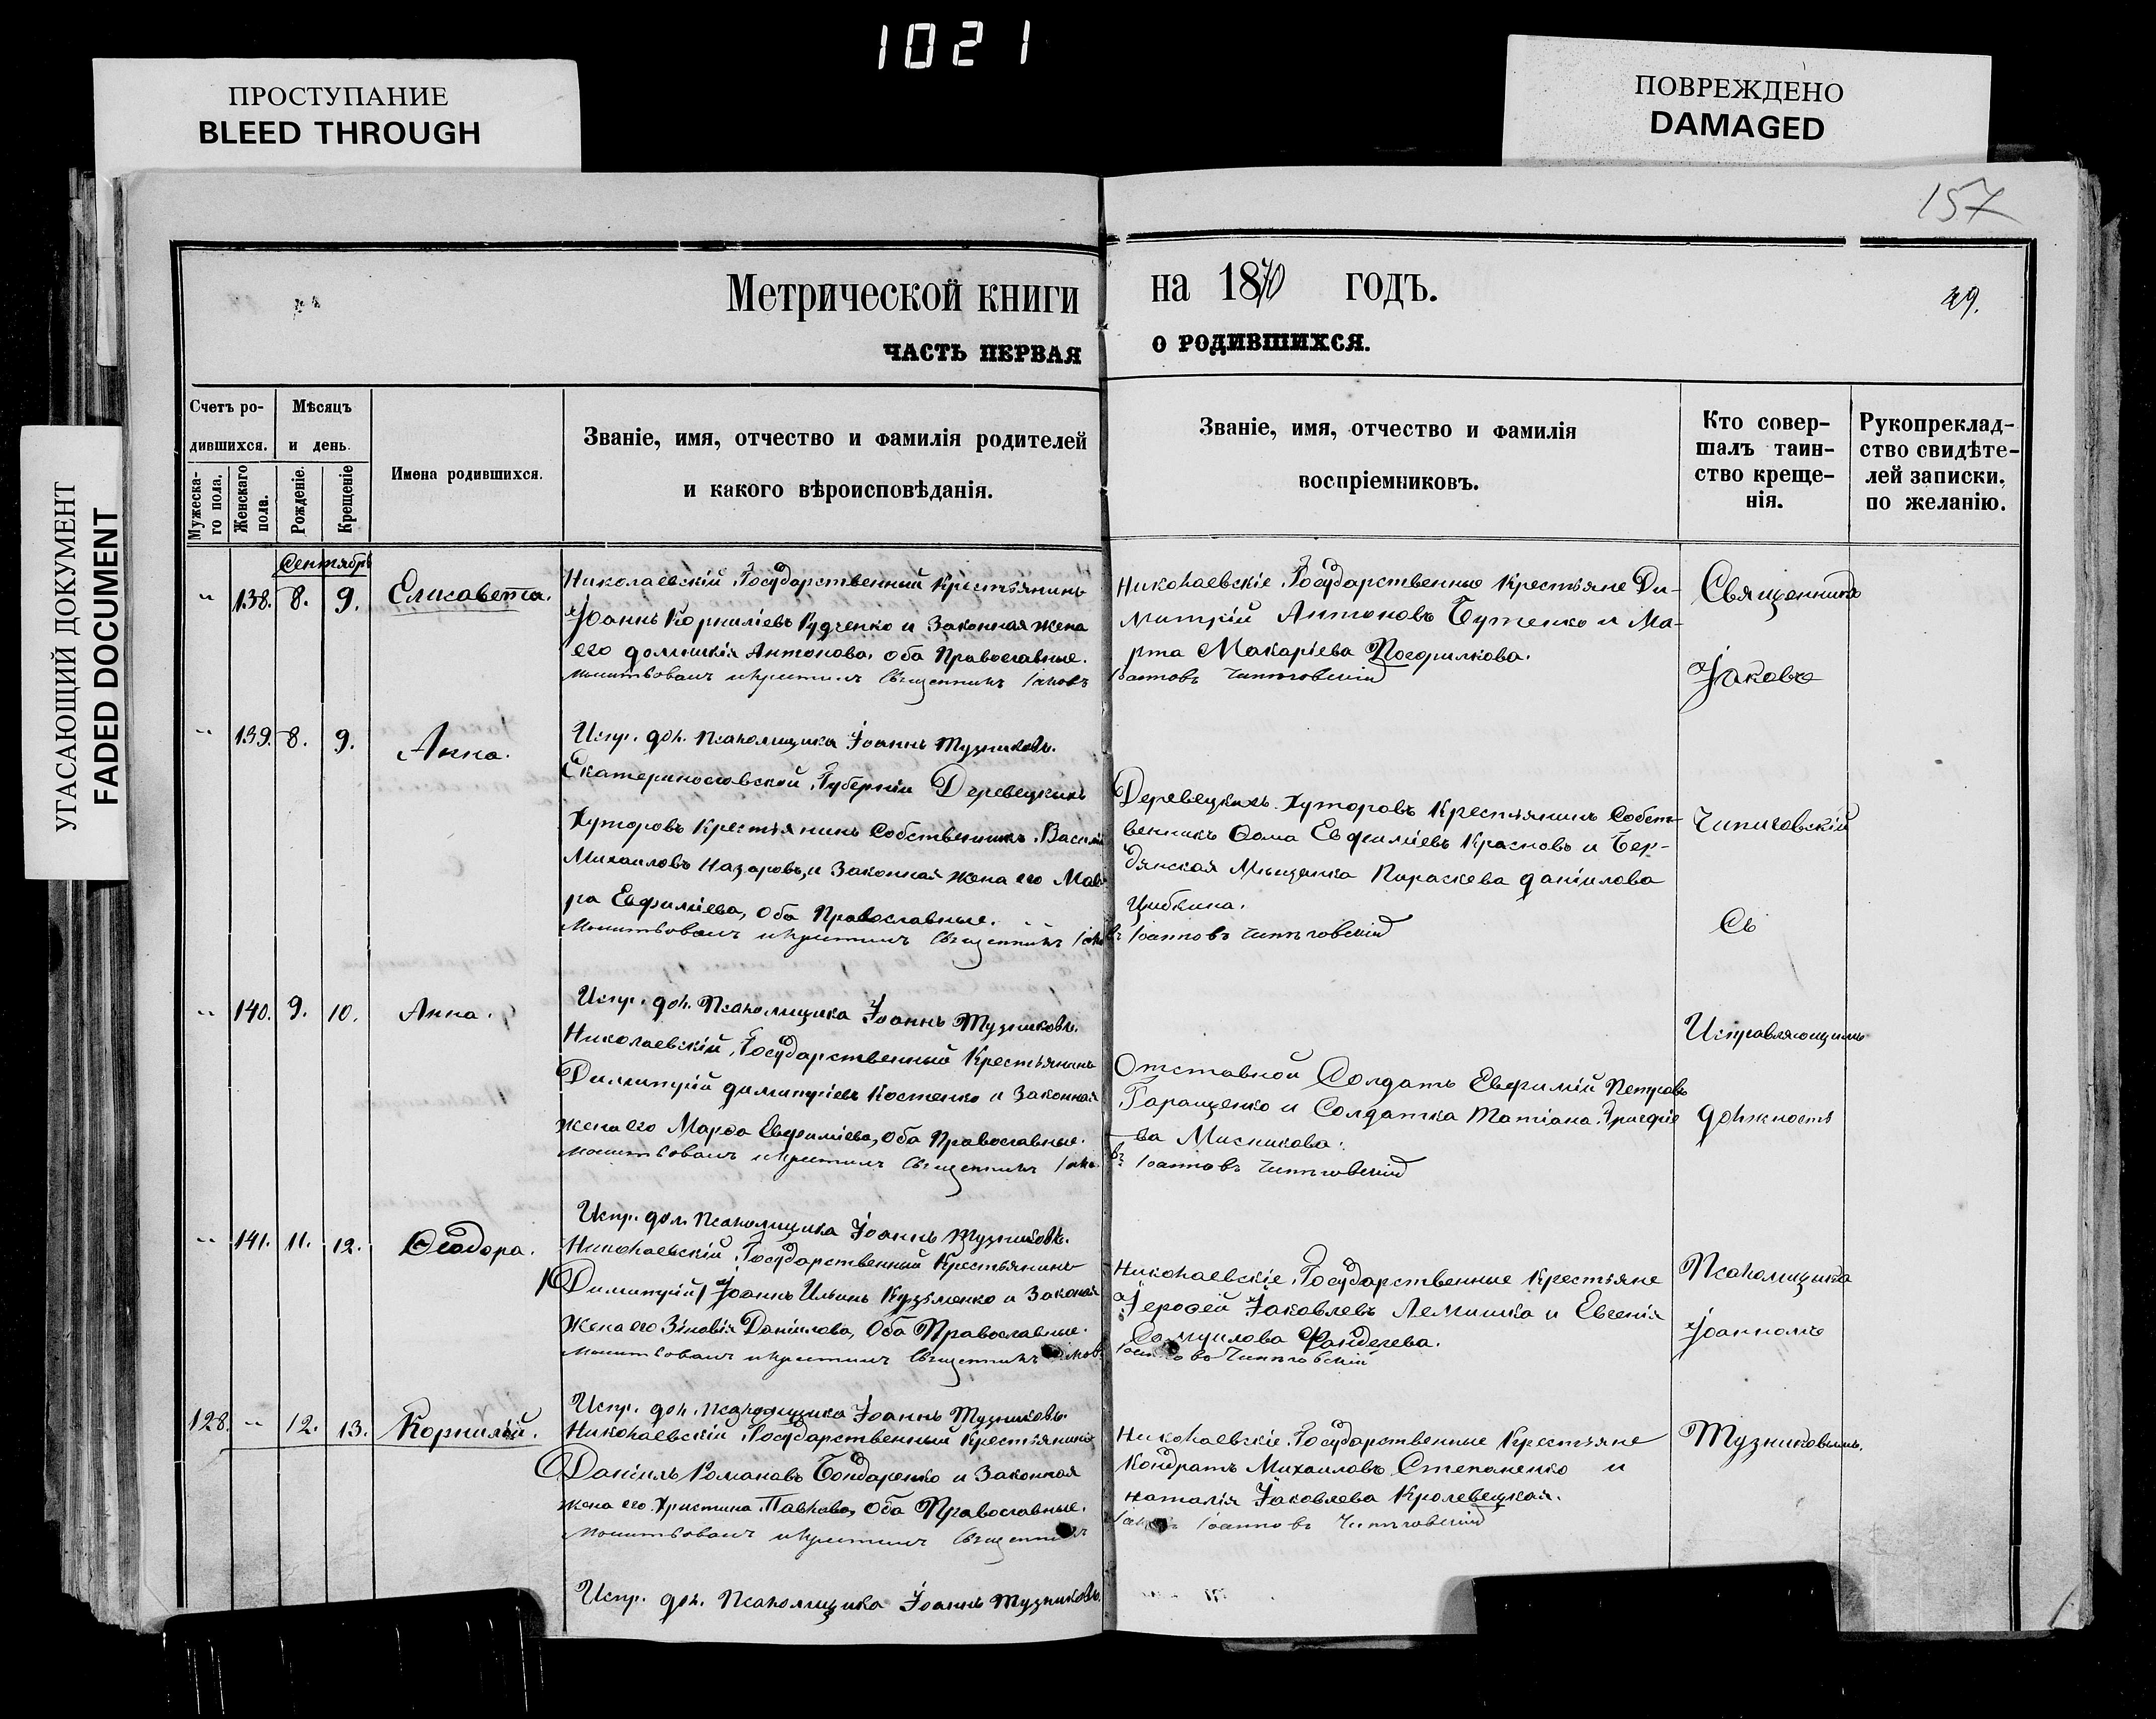 1021
ПРОСТУПАНИЕ
BLEED THROUGH
ПОВРЕЖДЕНО
DAMAGED
УГАСАЮЩИЙ ДОКУМЕНТ
FADED DOCUMENT
157
Метрической книги на 1870 годъ.
29.
ЧАСТЬ ПЕРВАЯ О РОДИВШИХСЯ.
Счетъ ро-
дившихся.
Мужеска-
го пола.
Женскаго
пола.
Мѣсяцъ
и день.
Рожденіе.
Крещеніе
Имена родившихся.
Званіе, имя, отчество и фамилія родителей
и какого вѣроисповѣданія.
Званіе, имя, отчество и фамилія
воспріемниковъ.
Кто совер-
шалъ таин-
ство креще-
нія.
Рукопреклад-
ство свидѣте-
лей записки,
по желанію.
Сентябрь
" 138. 8. 9. Елисавета.
Николаевскій Государственный Крестьянинъ
Іоаннъ Корниліевъ Рудченко и Законная жена
его Домникія Антонова, оба Православные.
Молитвовалъ и крестилъ Священникъ Іаковъ
Николаевскіе Государственные Крестьяне Ди-
митрій Антоновъ Бутенко и Ма-
рта Макаріева Погорилкова.
Іоанновъ Чипиговскій
Священникъ
Іаковъ
" 139. 8. 9. Анна.
Испр. дол. Псаломщика Іоаннъ Музниковъ.
Екатеринославской Губерніи Деревецкихъ
Хуторовъ Крестьянинъ Собственникъ Василій
Михаиловъ Назаровъ, и Законная жена его Мав-
ра Евфиміева, Оба Православные.
Молитвовалъ и крестилъ Священникъ Іако
Деревецкихъ Хуторовъ Крестьянинъ Собст-
венникъ Ѳома Евфиміевъ Красновъ и Бер-
дянская Мѣщанка Параскева Даніилова
Цибкина.
въ Іоанновъ Чипиговскій
Чипиговскій
Съ
" 140. 9. 10. Анна.
Испр. дол. Псаломщика Іоаннъ Музниковъ.
Николаевскій Государственный Крестьянинъ
Димитрій Димитріевъ Костенко и Законная
жена его Марѳа Евфиміева, Оба Православные.
Молитвовалъ и крестилъ Священникъ Іако
Отставной Солдатъ Евфимій Петровъ
Таращенко и Солдатка Татіана Григоріе
ва Мисникова.
въ Іоанновъ Чипиговскій
Исправляющимъ
должность
" 141. 11. 12. Ѳеодора.
Испр. дол. Псаломщика Іоаннъ Музниковъ.
Николаевскій Государственный Крестьянинъ
(Димитрій) Іоаннъ Ильинъ Кузьменко и Законная
Жена его Зиновія Даніилова, Оба Православные.
Молитвовалъ и крестилъ Священникъ
Николаевскіе Государственные Крестьяне
Іероѳей Іаковлевъ Лемишка и Евгенія
Самуилова
Іоанновъ Чипиговскій
Псаломщика
Іоанномъ
128. " 12. 13. Корнилій.
Испр. дол. Псаломщика Іоаннъ Музниковъ.
Николаевскій Государственный Крестьянинъ
Даніилъ Романовъ Бондаренко и Законная
жена его Христина Павлова, Оба Православные.
Молитвовалъ и крестилъ Священникъ
Николаевскіе Государственные Крестьяне
Кондратъ Михаиловъ Степаненко и
Наталія Іаковлева Кролевецкая.
Іаковъ Іоанновъ Чипиговскій
Музниковымъ.
Испр. дол. Псаломщика Іоаннъ Музниковъ.